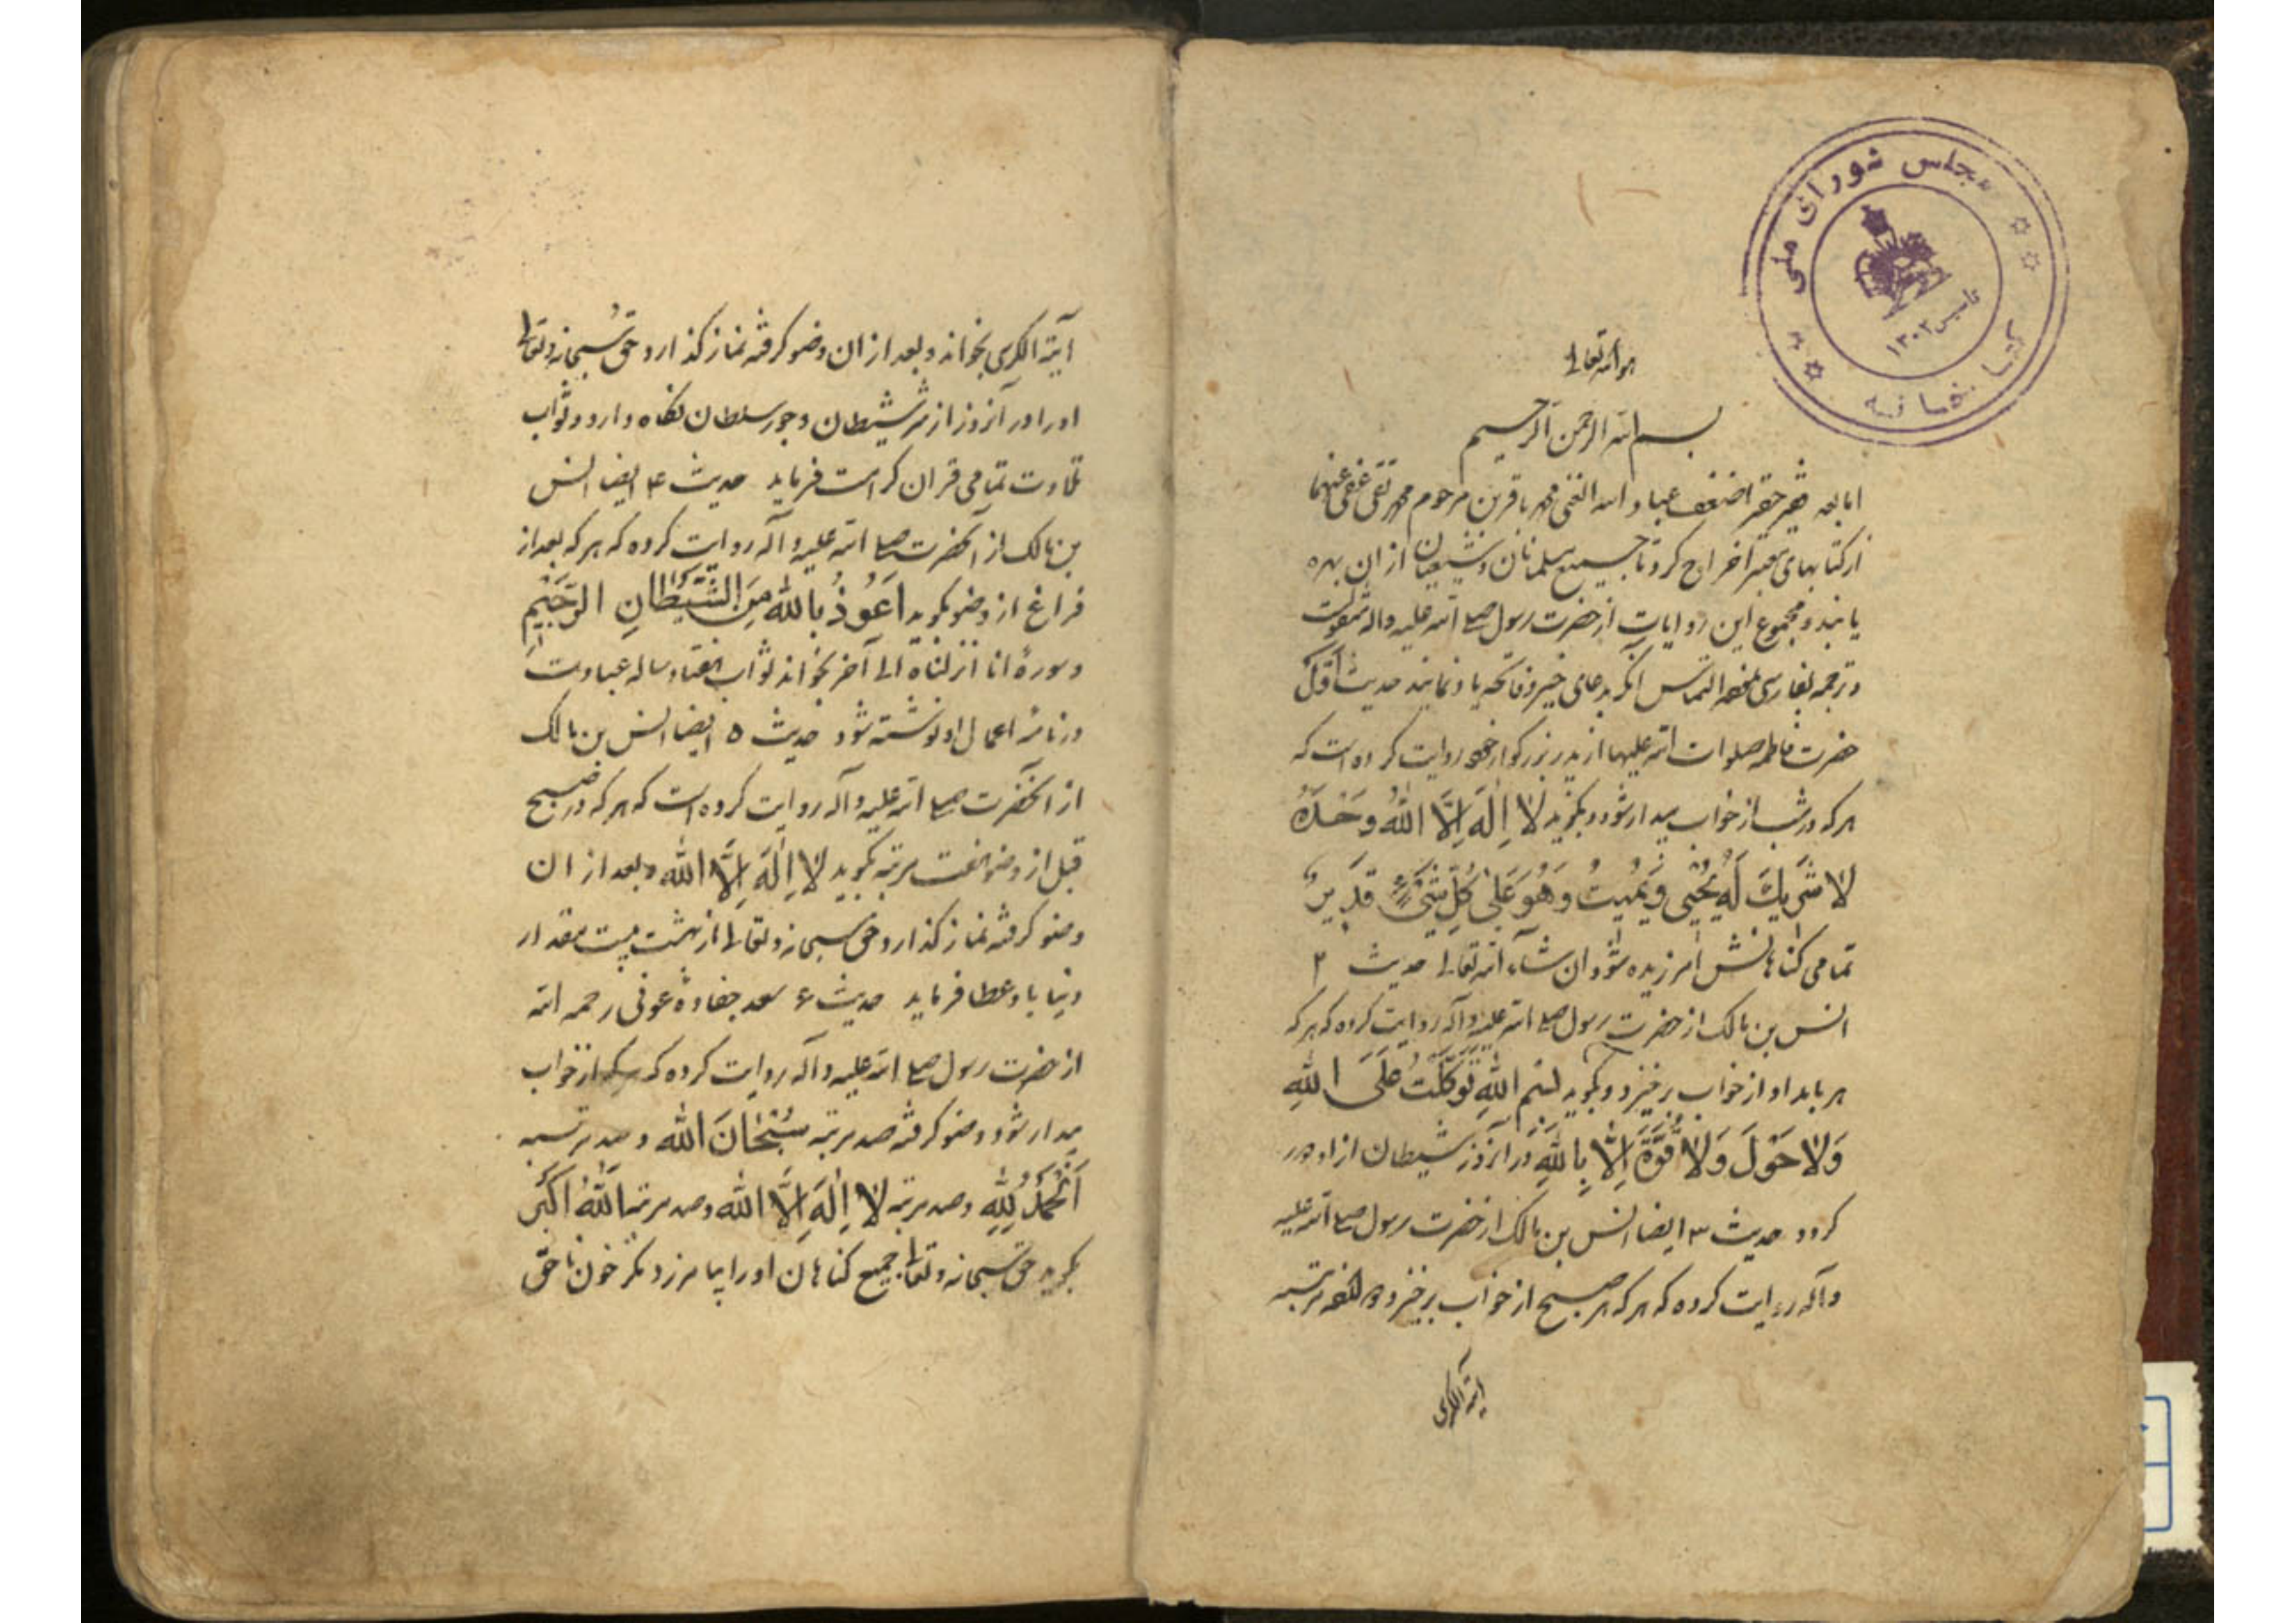 مجلس شورای ملی
کتابخانه
تأسیس ۱۳۰۲
هو الله تعالی
بسم الله الرحمن الرحیم
اما بعد فقیر حقیر اضعف عباد الله الغنی محمد باقر بن مرحوم محمد تقی عفی عنهما
از کتابهای معتبر اخراج کرد تا جمیع مسلمانان و شیعیان از ان بهره
یابند و مجموع این روایات از حضرت رسول صلی الله علیه واله منقولست
و ترجمه بفارسی التماس انکه بدعای خیر و فاتحه یاد نمایند حدیث اَوَّل
حضرت فاطمه صلوات الله علیها از پدر بزرکوار خود روایت کرده است که
هر که در شب از خواب بیدار شود و بکوید لا اِلٰهَ اِلَّا اللهُ وَحْدَهُ
لا شَرِیكَ لَهُ یُحْیِی وَ یُمِیتُ وَ هُوَ عَلیٰ کُلِّ شَیْءٍ قَدِیرٌ
تمامی کناهانش امرزیده شود ان شاء الله تعالی حدیث ۲
انس بن مالک از حضرت رسول صلی الله علیه وآله روایت کرده که هر که
هر بامداد از خواب برخیزد و بکوید بسم اللهِ تَوَکَّلْتُ عَلَی اللهِ
وَلا حَوْلَ وَلا قُوَّةَ اِلَّا بِاللهِ در انروز شیطان از او دور
کردد حدیث ۳ ایضا انس بن مالک از حضرت رسول صلی الله علیه
واله روایت کرده که هر که هر صبح از خواب برخیزد و مرتبه
ایة الکرسی
آیة الکرسی بخواند و بعد از ان وضو کرفته نماز کذارد حق سبحانه و تعالی
او را در آنروز از شر شیطان و جور سلطان نکاه دارد و ثواب
تلاوت تمامی قران کرامت فرماید حدیث ۴ ایضا انس
بن مالک از آنحضرت صلی الله علیه وآله روایت کرده که هر که بعد از
فراغ از وضو بکوید اَعُوذُ بِاللهِ مِنَ الشَّیْطَانِ الرَّجِیْمِ
و سورهٔ انا انزلناه الی آخر بخواند ثواب هفتاد ساله عبادت
در نامهٔ اعمال او نوشته شود حدیث ۵ ایضا انس بن مالک
از انحضرت صلی الله علیه وآله روایت کرده است که هر که در صبح
قبل از وضو هفت مرتبه بکوید لا اِلٰهَ اِلَّا الله و بعد از ان
وضو کرفته نماز کذارد حق سبحانه و تعالی از بهشت بیست مقدار
دنیا باو عطا فرماید حدیث ۶ سعد عوفی رحمه الله
از حضرت رسول صلی الله علیه وآله روایت کرده که هر که از خواب
بیدار شود و وضو کرفته صد مرتبه سُبْحَانَ الله و صد مرتبه
اَلْحَمْدُ لِلّٰهِ و صد مرتبه لا اِلٰهَ اِلَّا الله و صد مرتبه اَللهُ اَکْبَر
بکوید حق سبحانه و تعالی جمیع کناهان او را بیامرزد مکر خون ناحق